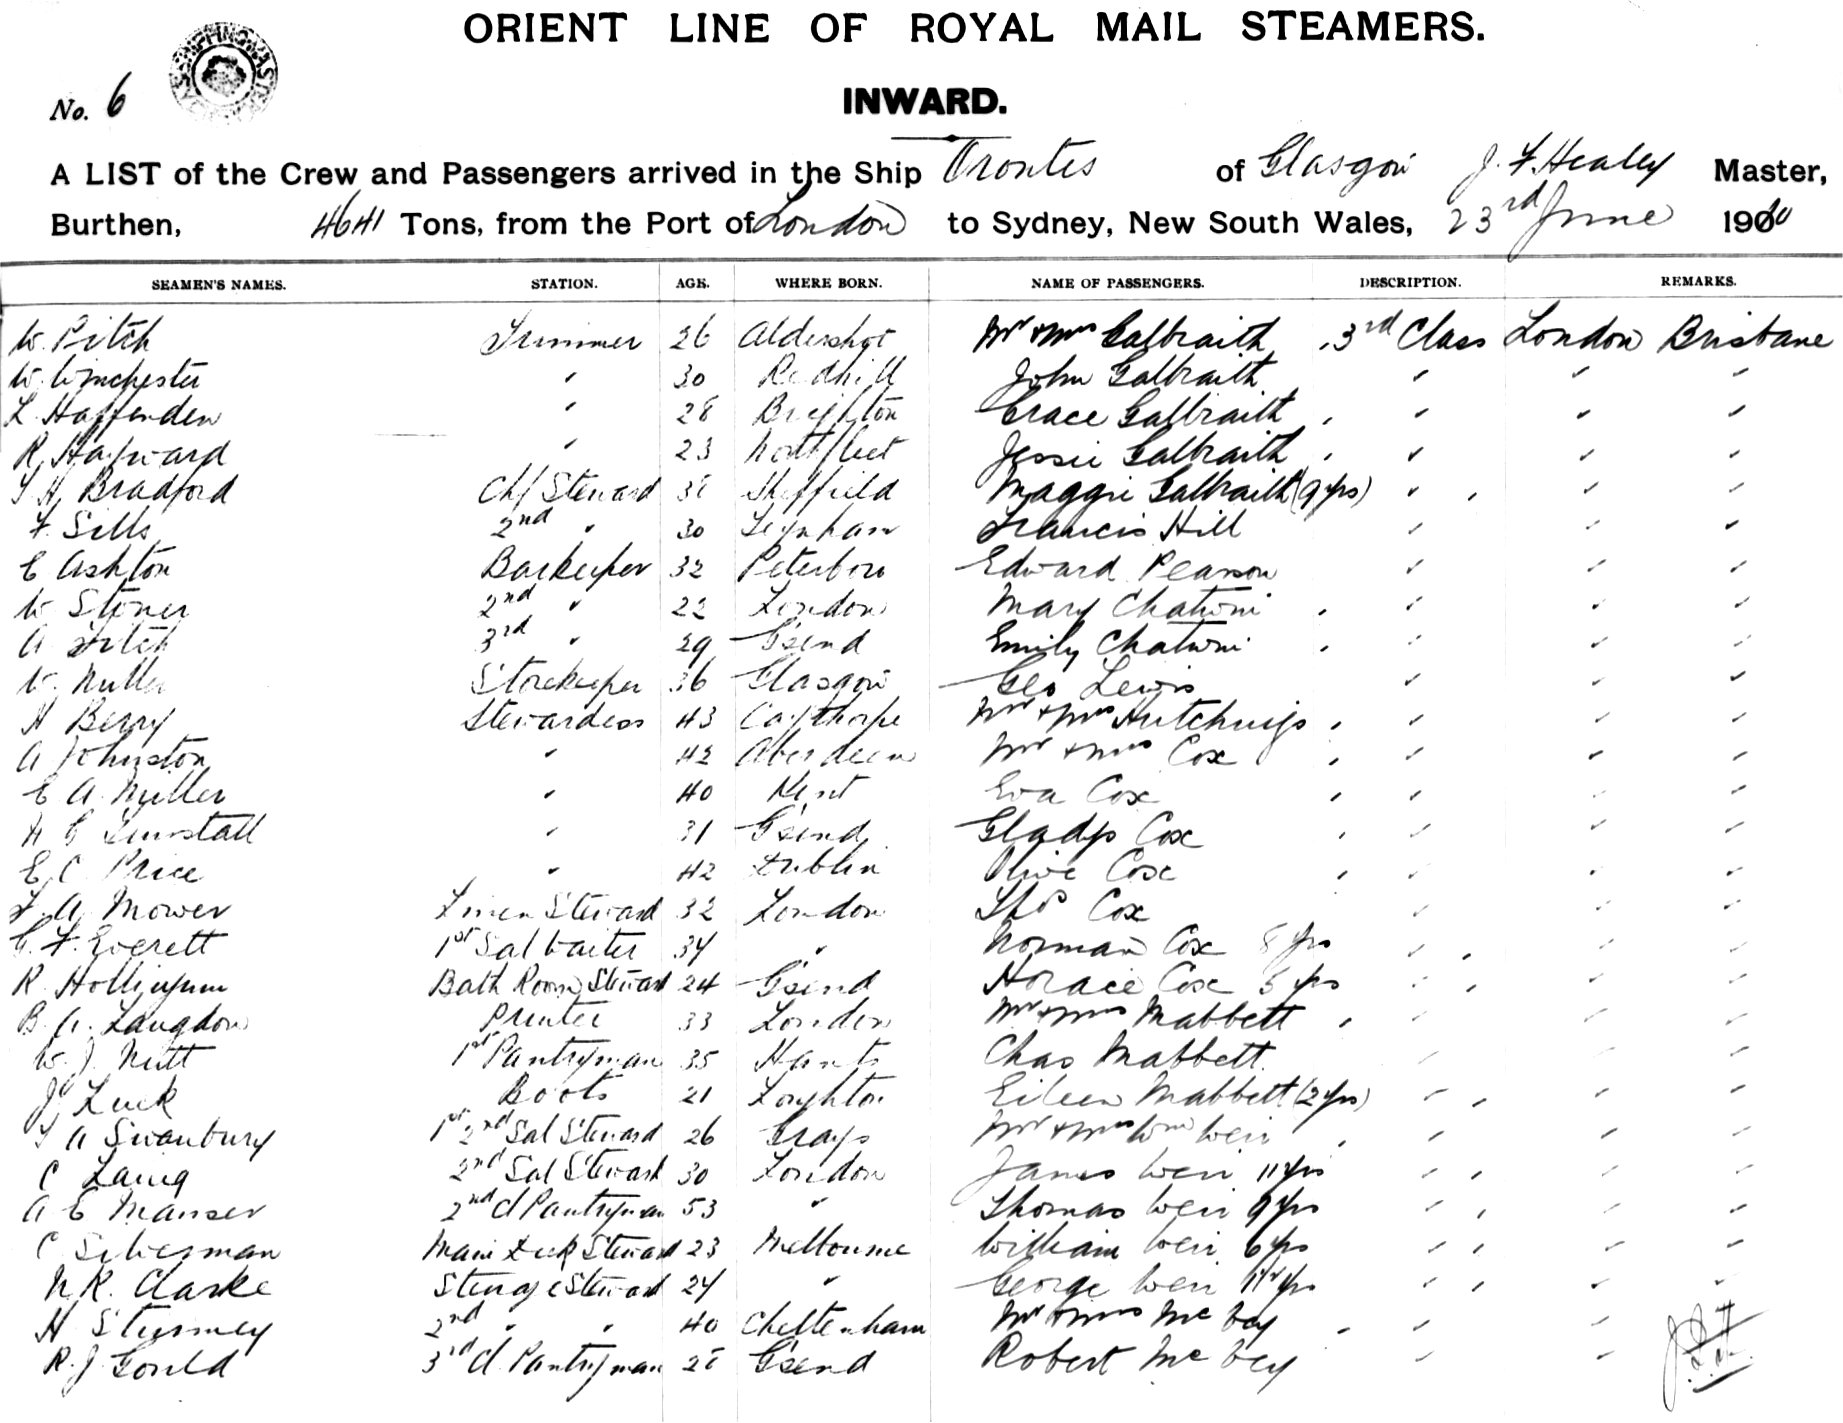 ORIENT LINE OF ROYAL MAIL STEAMERS.
No. 6
INWARD.
A LIST of the Crew and Passengers arrived in the Ship Orontes of Glasgow J. F. Healey Master,
Burthen, 4641 Tons, from the Port of London to Sydney, New South Wales, 23rd June 1910
SEAMEN'S NAMES. STATION. AGE. WHERE BORN. NAME OF PASSENGERS. DESCRIPTION. REMARKS.
W. Pitch Trimmer 26 Aldershot Mr & Mrs Galbraith 3rd Class London Brisbane
W. Winchester " 30 Redhill John Galbraith " " "
L. Haffenden " 28 Brighton Grace Galbraith " " "
R. Hayward " 23 Northfleet Jessie Galbraith " " "
T H Bradford Chf Steward 38 Sheffield Maggie Galbraith (9 yrs) " " "
F. Sills 2nd " 30 Francis Hill " " "
E Ashton Barkeeper 32 Peterboro Edward Pearson " " "
W Stoner 2nd " 22 London Mary Chatwin " " "
A Fitch 3rd " 29 G'send Emily Chatwin " " "
W. Storekeeper 36 Glasgow Geo Lewis " " "
H Berry Stewardess 43 Caythorpe Mr & Mrs Hutchings " " "
A Johnston " 42 Aberdeen Mr & Mrs Cox " " "
E A. Miller " 40 Kent Eva Cox " " "
H G Tunstall " 31 G'send Gladys Cox " " "
E. C. Price " 42 Dublin Olive Cox " " "
F. A. Mower Linen Steward 32 London Thos Cox " " "
G. F. Everett 1st Sal Waiter 34 " Norman Cox 8 yrs " " "
R. Bath Room Steward 24 G'send Horace Cox 5 yrs " " "
B. A. Langdon Printer 33 London Mr & Mrs Mabbett " " "
W. J. Nutt 1st Pantryman 35 Hants Chas Mabbett " " "
J. Luck Boots 21 Loughton Eileen Mabbett (2 yrs) " " "
T A Swanbury 1st 2nd Sal Steward 26 Grays Mr & Mrs Wm Weir " " "
C Laing 2nd Sal Steward 30 London James Weir 11 yrs " " "
A E Manser 2nd Cl Pantryman 53 " Thomas Weir 9 yrs " " "
C Silverman Main Deck Steward 23 Melbourne William Weir 6 yrs " " "
N. R. Clarke Steerage Steward 24 " George Weir yrs " " "
H Sturmey 2nd " " 40 Cheltenham Mr & Mrs McVey " "
R. J. Gould 3rd Cl. Pantryman 28 G'send Robert McVey " "